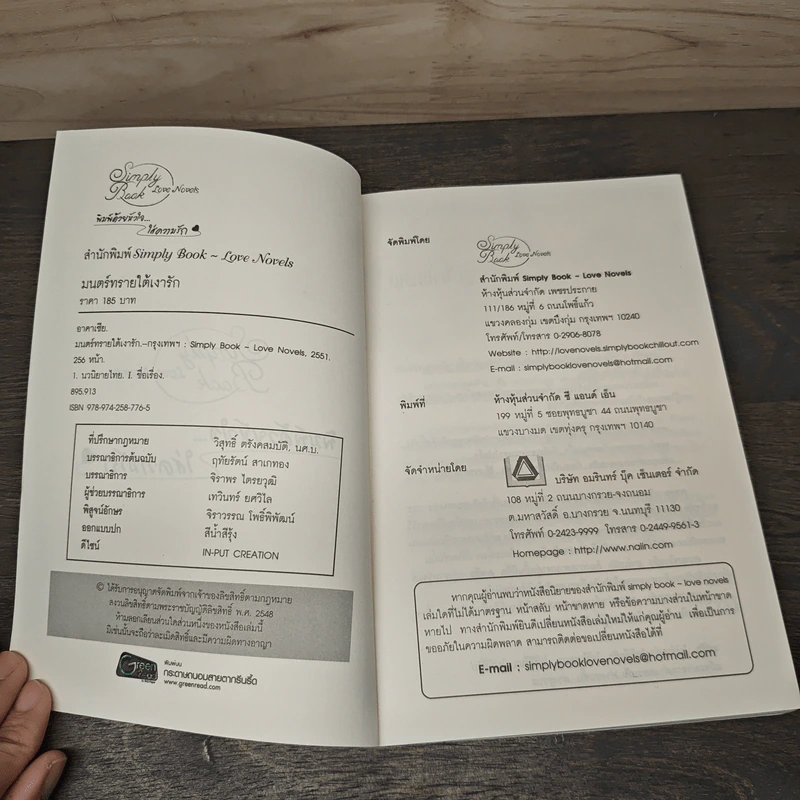 Simply Book Love Novels
พิมพ์ด้วยหัวใจ...
ใส่ความรัก
สำนักพิมพ์ Simply Book ~ Love Novels
มนตร์ทรายใต้เงารัก
ราคา 185 บาท
อาคาเซีย.
มนตร์ทรายใต้เงารัก.–กรุงเทพฯ : Simply Book – Love Novels, 2551.
256 หน้า.
1. นวนิยายไทย. I. ชื่อเรื่อง.
895.913
ISBN 978-974-258-776-5
ที่ปรึกษากฎหมาย วิสุทธิ์ ตรังคสมบัติ, นศ.บ.
บรรณาธิการต้นฉบับ ฤทัยรัตน์ สาเกทอง
บรรณาธิการ จิราพร ไตรยวุฒิ
ผู้ช่วยบรรณาธิการ เทวินทร์ ยศวิไล
พิสูจน์อักษร จิราวรรณ โพธิ์พิพัฒน์
ออกแบบปก สีน้ำสีรุ้ง
ดีไซน์ IN-PUT CREATION
© ได้รับการอนุญาตจัดพิมพ์จากเจ้าของลิขสิทธิ์ตามกฎหมาย
สงวนลิขสิทธิ์ตามพระราชบัญญัติลิขสิทธิ์ พ.ศ. 2548
ห้ามลอกเลียนส่วนใดส่วนหนึ่งของหนังสือเล่มนี้
มิเช่นนั้นจะถือว่าละเมิดสิทธิ์และมีความผิดทางอาญา
Green Read
พิมพ์บน
กระดาษถนอมสายตากรีนรี้ด
www.greenread.com
จัดพิมพ์โดย
Simply Book Love Novels
สำนักพิมพ์ Simply Book ~ Love Novels
ห้างหุ้นส่วนจำกัด เพชรประกาย
111/186 หมู่ที่ 6 ถนนโพธิ์แก้ว
แขวงคลองกุ่ม เขตบึงกุ่ม กรุงเทพฯ 10240
โทรศัพท์/โทรสาร 0-2906-8078
Website : http://lovenovels.simplybookchillout.com
E-mail : simplybooklovenovels@hotmail.com
พิมพ์ที่ ห้างหุ้นส่วนจำกัด ซี แอนด์ เอ็น
199 หมู่ที่ 5 ซอยพุทธบูชา 44 ถนนพุทธบูชา
แขวงบางมด เขตทุ่งครุ กรุงเทพฯ 10140
จัดจำหน่ายโดย บริษัท อมรินทร์ บุ๊ค เซ็นเตอร์ จำกัด
108 หมู่ที่ 2 ถนนบางกรวย-จงถนอม
ต.มหาสวัสดิ์ อ.บางกรวย จ.นนทบุรี 11130
โทรศัพท์ 0-2423-9999 โทรสาร 0-2449-9561-3
Homepage : http://www.naiin.com
หากคุณผู้อ่านพบว่าหนังสือนิยายของสำนักพิมพ์ simply book ~ love novels
เล่มใดที่ไม่ได้มาตรฐาน หน้าสลับ หน้าขาดหาย หรือข้อความบางส่วนในหน้าขาด
หายไป ทางสำนักพิมพ์ยินดีเปลี่ยนหนังสือเล่มใหม่ให้แก่คุณผู้อ่าน เพื่อเป็นการ
ขออภัยในความผิดพลาด สามารถติดต่อขอเปลี่ยนหนังสือได้ที่
E-mail : simplybooklovenovels@hotmail.com